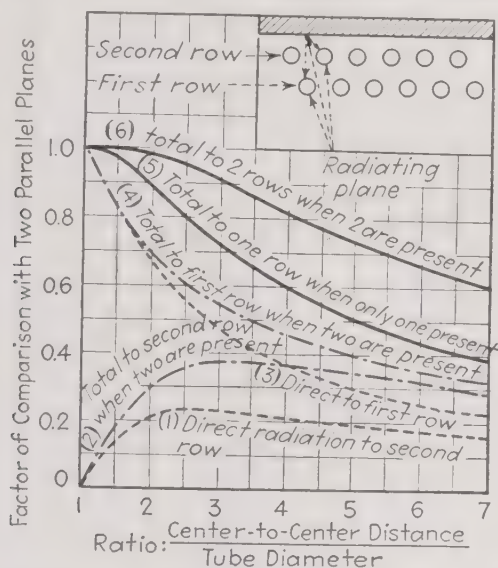 Second row
First row
Radiating
plane
Factor of Comparison with Two Parallel Planes
1.0
0.8
0.6
0.4
0.2
0
(6) total to 2 rows when 2 are present
(5) Total to one row when only one present
(4) Total to first row when two are present
Total to second row
(2) when two are present
(3) Direct to first row
(1) Direct radiation to second
row
1 2 3 4 5 6 7
Ratio: Center-to-Center Distance
Tube Diameter